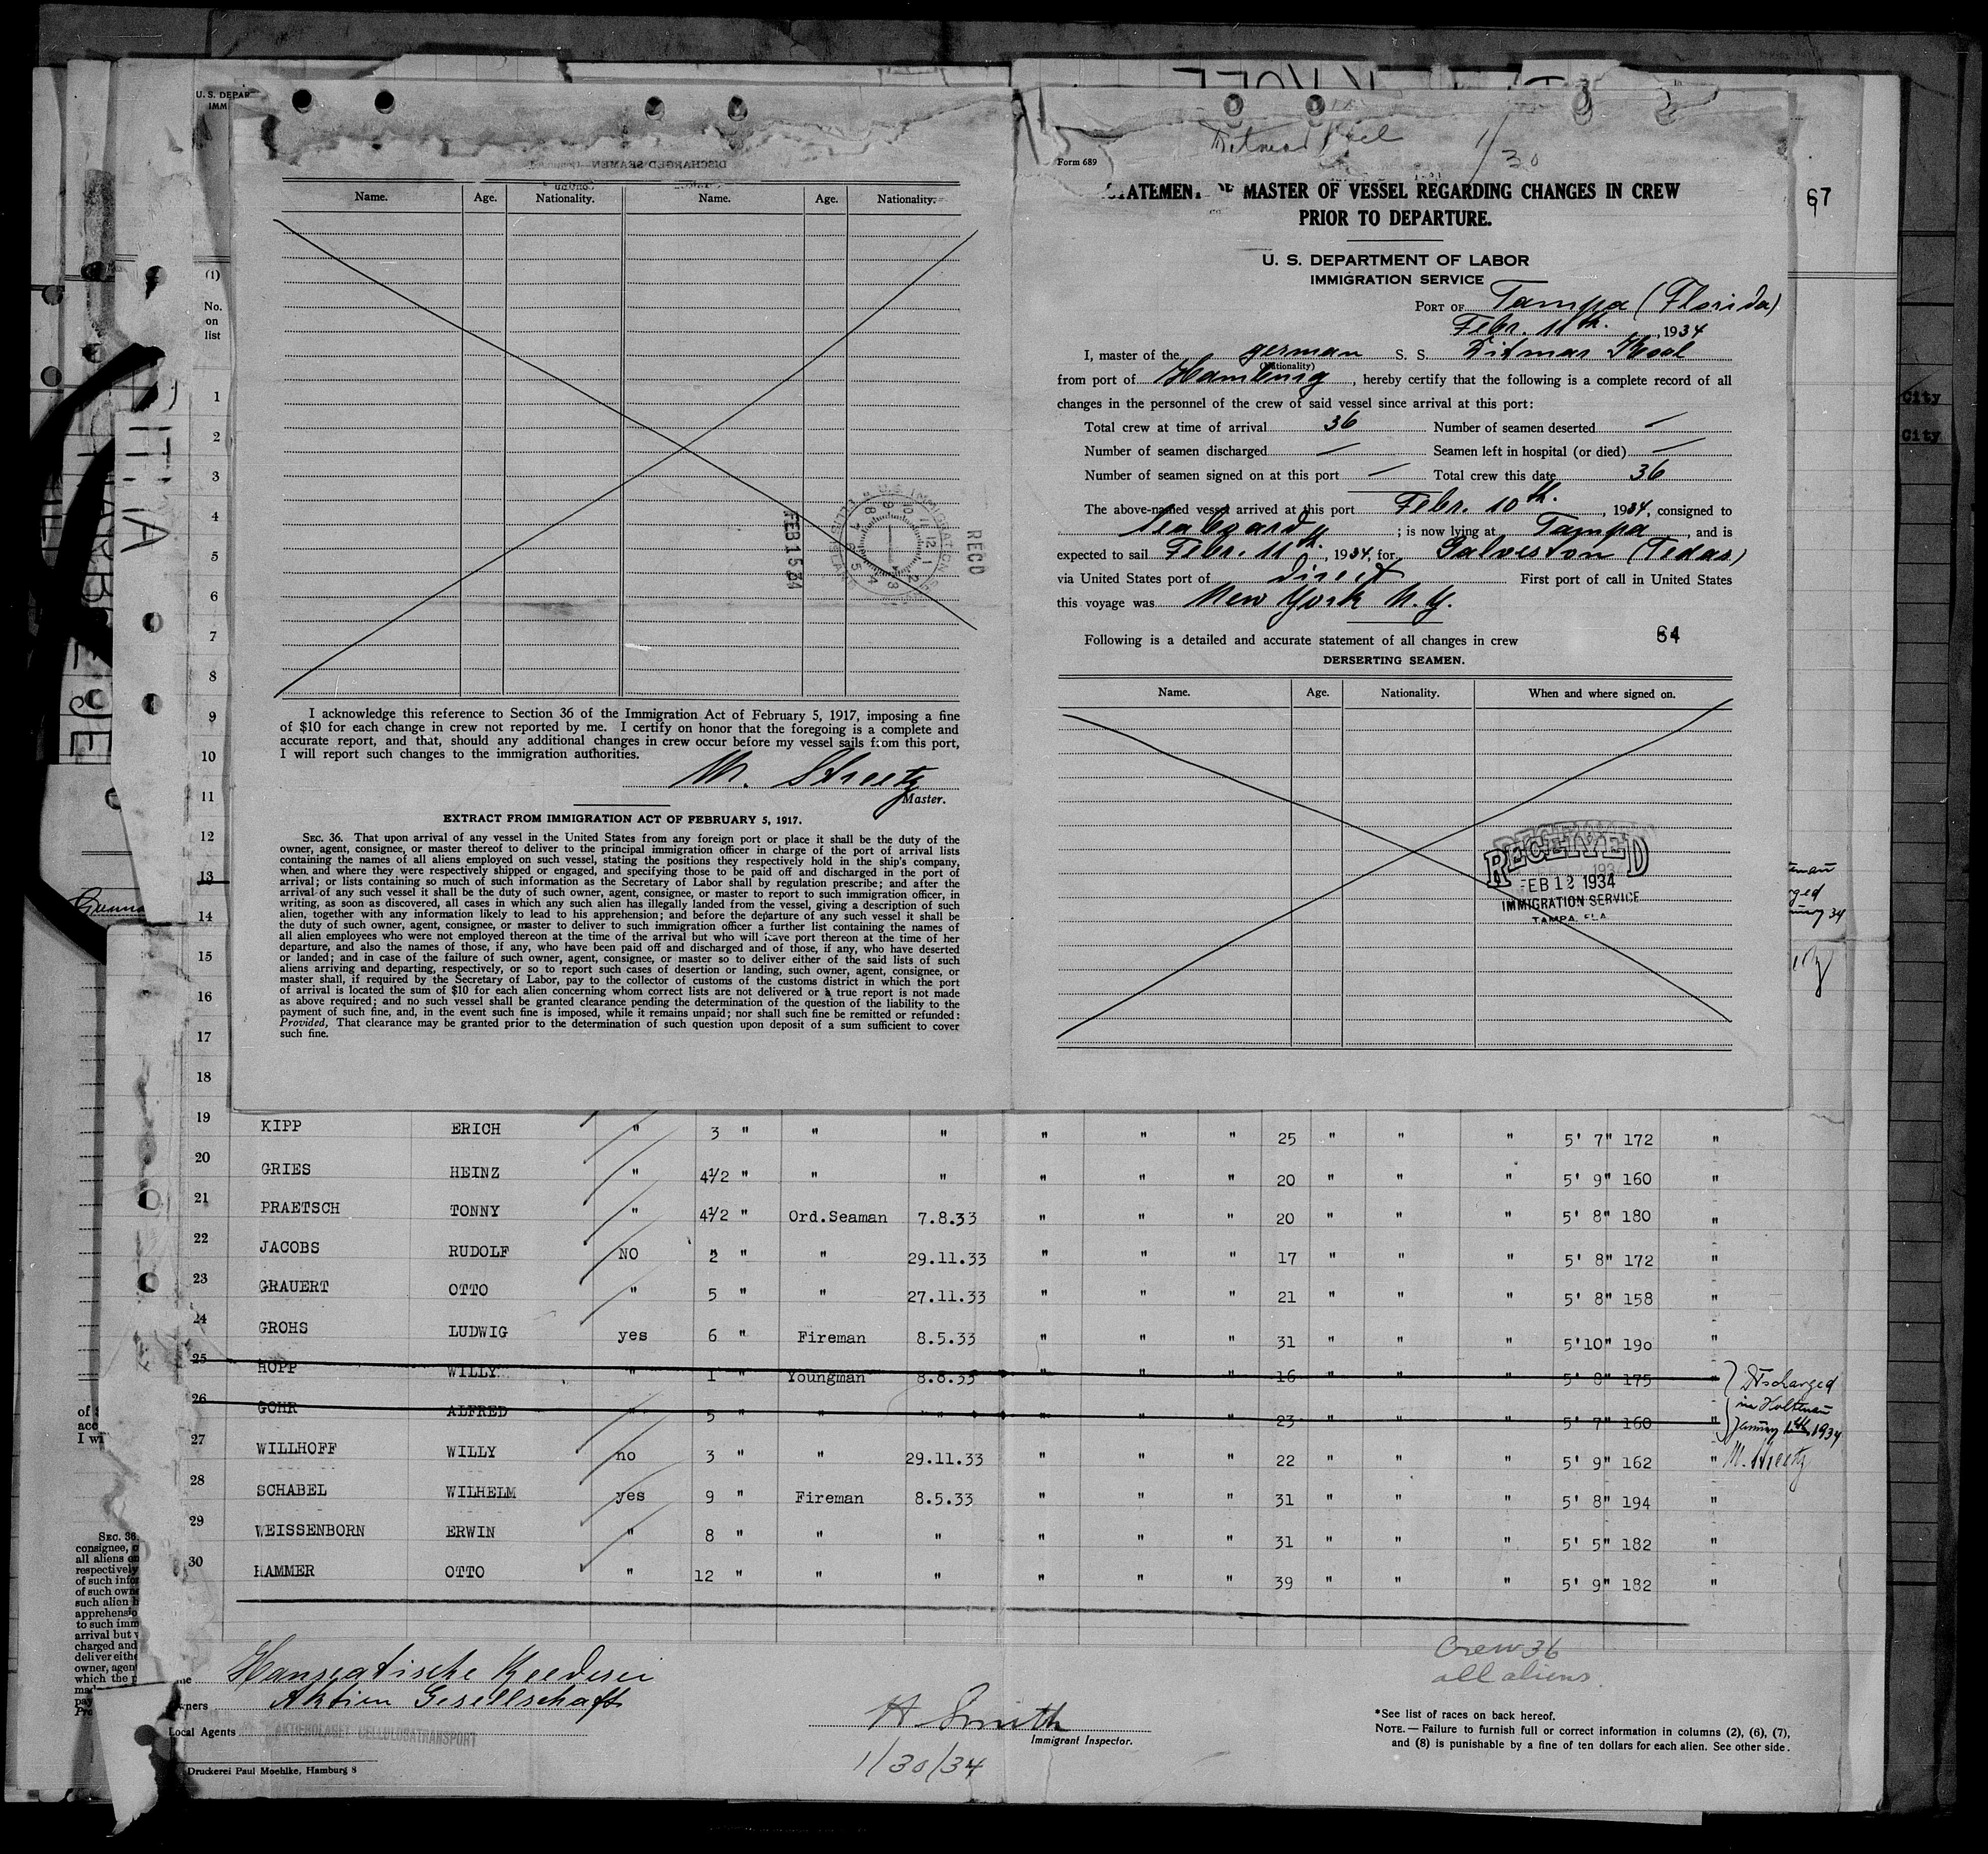 U. S. DEPAR
IMM
DISCHARGED SEAMEN
Name. Age. Nationality. Name. Age. Nationality.
(1)
No.
on
list
1
2
3
4
5
6
7
8
9
10
11
12
13
14
15
16
17
18
FEB 15 34
RECD
I acknowledge this reference to Section 36 of the Immigration Act of February 5, 1917, imposing a fine
of $10 for each change in crew not reported by me. I certify on honor that the foregoing is a complete and
accurate report, and that, should any additional changes in crew occur before my vessel sails from this port,
I will report such changes to the immigration authorities.
M. Streetz
Master.
EXTRACT FROM IMMIGRATION ACT OF FEBRUARY 5, 1917.
SEC. 36. That upon arrival of any vessel in the United States from any foreign port or place it shall be the duty of the
owner, agent, consignee, or master thereof to deliver to the principal immigration officer in charge of the port of arrival lists
containing the names of all aliens employed on such vessel, stating the positions they respectively hold in the ship's company,
when and where they were respectively shipped or engaged, and specifying those to be paid off and discharged in the port of
arrival; or lists containing so much of such information as the Secretary of Labor shall by regulation prescribe; and after the
arrival of any such vessel it shall be the duty of such owner, agent, consignee, or master to report to such immigration officer, in
writing, as soon as discovered, all cases in which any such alien has illegally landed from the vessel, giving a description of such
alien, together with any information likely to lead to his apprehension; and before the departure of any such vessel it shall be
the duty of such owner, agent, consignee, or master to deliver to such immigration officer a further list containing the names of
all alien employees who were not employed thereon at the time of the arrival but who will leave port thereon at the time of her
departure, and also the names of those, if any, who have been paid off and discharged and of those, if any, who have deserted
or landed; and in case of the failure of such owner, agent, consignee, or master so to deliver either of the said lists of such
aliens arriving and departing, respectively, or so to report such cases of desertion or landing, such owner, agent, consignee, or
master shall, if required by the Secretary of Labor, pay to the collector of customs of the customs district in which the port
of arrival is located the sum of $10 for each alien concerning whom correct lists are not delivered or a true report is not made
as above required; and no such vessel shall be granted clearance pending the determination of the question of the liability to the
payment of such fine, and, in the event such fine is imposed, while it remains unpaid; nor shall such fine be remitted or refunded:
Provided, That clearance may be granted prior to the determination of such question upon deposit of a sum sufficient to cover
such fine.
Ditmar Koel 1/30
Form 689
STATEMENT OF MASTER OF VESSEL REGARDING CHANGES IN CREW
PRIOR TO DEPARTURE.
67
U. S. DEPARTMENT OF LABOR
IMMIGRATION SERVICE
PORT OF Tampa (Florida)
Febr. 11th. , 1934
I, master of the german S. S. Ditmar Koel
(Nationality)
from port of Hamburg , hereby certify that the following is a complete record of all
changes in the personnel of the crew of said vessel since arrival at this port:
Total crew at time of arrival 36 Number of seamen deserted —
Number of seamen discharged — Seamen left in hospital (or died) —
Number of seamen signed on at this port — Total crew this date 36
The above-named vessel arrived at this port Febr. 10th. , 1934, consigned to
Seaboard ; is now lying at Tampa , and is
expected to sail Febr. 11th. , 1934, for Galveston (Texas)
via United States port of direct First port of call in United States
this voyage was New York N.Y.
Following is a detailed and accurate statement of all changes in crew 64
DERSERTING SEAMEN.
Name. Age. Nationality. When and where signed on.
RECEIVED
FEB 12 1934
IMMIGRATION SERVICE
TAMPA, FLA
City
City
19 KIPP ERICH " 3 " " " " " " 25 " " " 5' 7" 172 "
20 GRIES HEINZ " 4½ " " " " " " 20 " " " 5' 9" 160 "
21 PRAETSCH TONNY " 4½ " Ord.Seaman 7.8.33 " " " 20 " " " 5' 8" 180 "
22 JACOBS RUDOLF NO 2 " " 29.11.33 " " " 17 " " " 5' 8" 172 "
23 GRAUERT OTTO " 5 " " 27.11.33 " " " 21 " " " 5' 8" 158 "
24 GROHS LUDWIG yes 6 " Fireman 8.5.33 " " " 31 " " " 5'10" 190 "
25 HOPP WILLY " 1 " Youngman 8.8.33 " " " 16 " " " 5' 8" 175 "
26 GOHR ALFRED " 5 " " " " " " " 23 " " " 5' 7" 160 "
Discharged
in Holtenau
January 1th, 1934
M. Streetz
27 WILLHOFF WILLY no 3 " " 29.11.33 " " " 22 " " " 5' 9" 162 "
28 SCHABEL WILHELM yes 9 " Fireman 8.5.33 " " " 31 " " " 5' 8" 194 "
29 WEISSENBORN ERWIN " 8 " " " " " " 31 " " " 5' 5" 182 "
30 HAMMER OTTO " 12 " " " " " " 39 " " " 5' 9" 182 "
of
acc
I wi
SEC. 36.
consignee, o
all aliens en
respectively
of such infor
of such owne
such alien h
apprehensio
to such imm
arrival but
charged and
deliver eithe
owner, agent
which the p
Crew 36
all aliens.
Hanseatische Reederei
Aktien Gesellschaft
Local Agents AKTIEBOLAGET CELLULOSATRANSPORT
H Smith
Immigrant Inspector.
1/30/34
*See list of races on back hereof.
NOTE.—Failure to furnish full or correct information in columns (2), (6), (7),
and (8) is punishable by a fine of ten dollars for each alien. See other side.
Druckerei Paul Moehlke, Hamburg 8